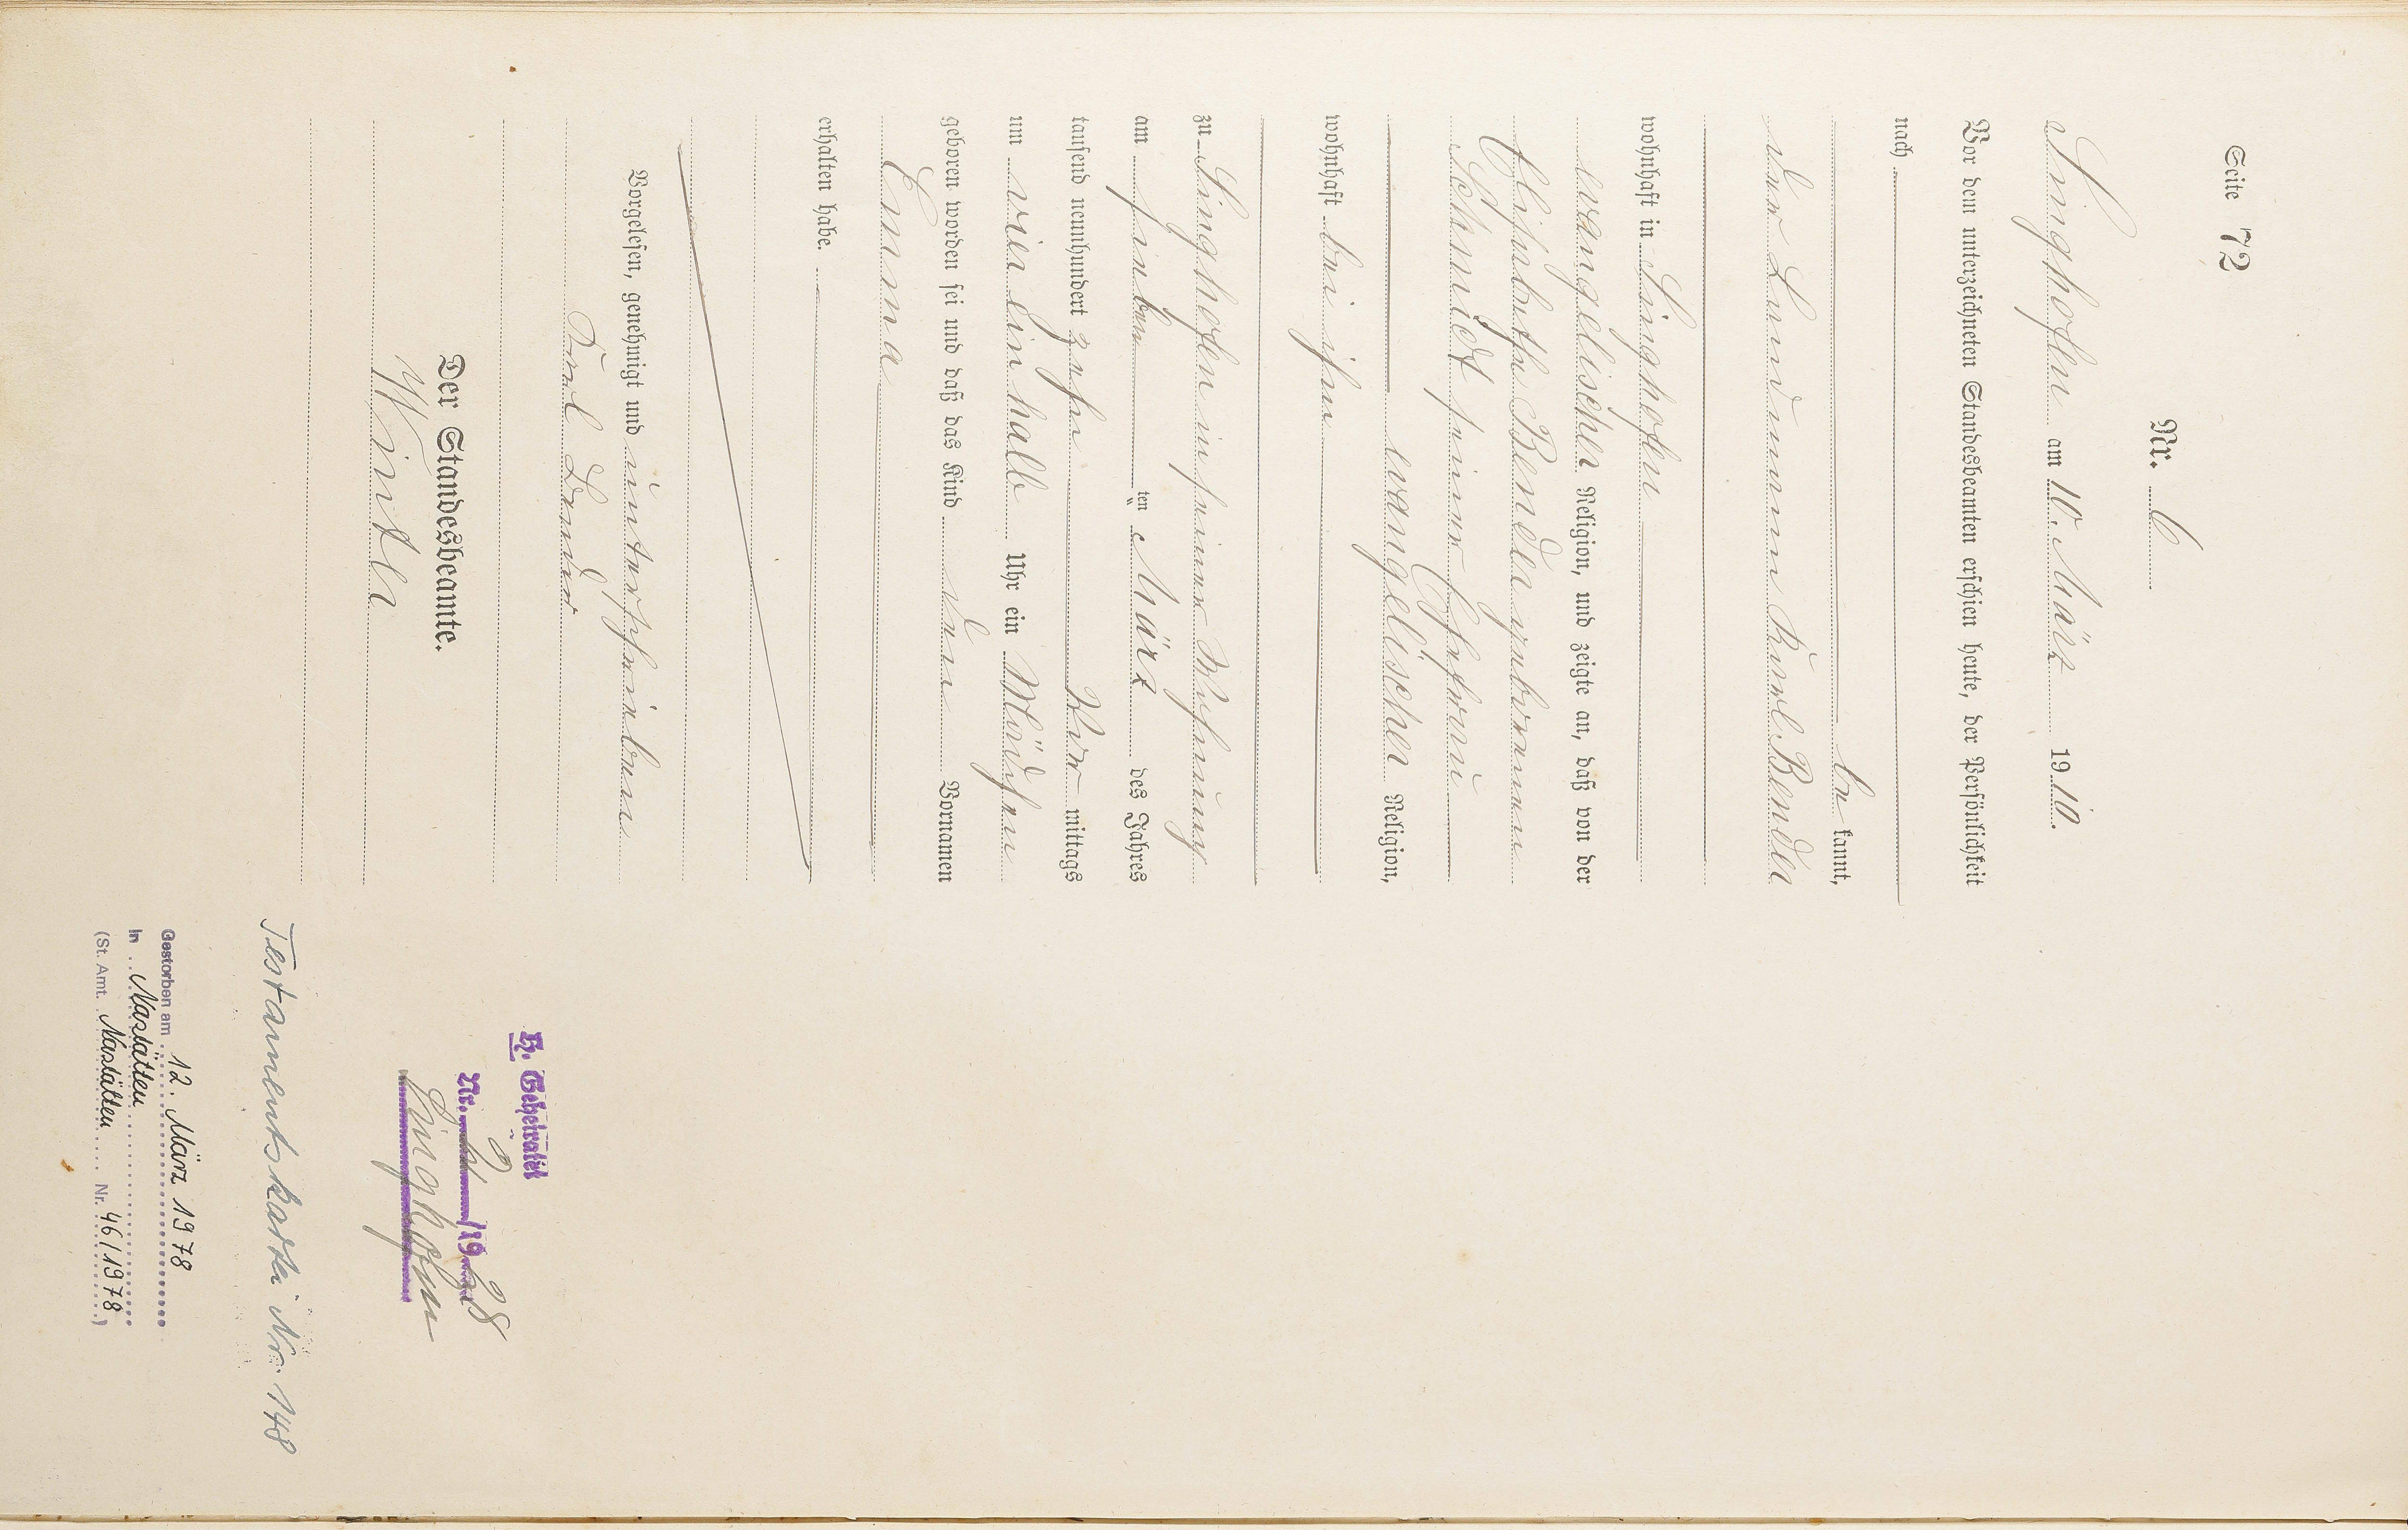 Seite 72
Nr. 6
Singhofen am 10. März 1910.
Vor dem unterzeichneten Standesbeamten erschien heute, der Persönlichkeit
nach
be kannt,
der Landmann Karl Bender
wohnhaft in Singhofen
evangelischer Religion, und zeigte an, daß von der
Elisabeth Bender geborenen
Schmidt seiner Ehefrau
evangelischer Religion,
wohnhaft bei ihm
zu Singhofen in seiner Wohnung
am sieben ten März des Jahres
tausend neunhundert zehn Vor mittags
um vier ein halb Uhr ein Mädchen
geboren worden sei und daß das Kind den Vornamen
Emma
erhalten habe.
Vorgelesen, genehmigt und unterschrieben
Karl Bender
Der Standesbeamte.
Winter
Geheiratet
Nr. /19
Singhofen
Testamentskartei Nr. 148
Gestorben am 12. März 1978
in Nastätten
(St. Amt. Nastätten Nr. 46/1978)